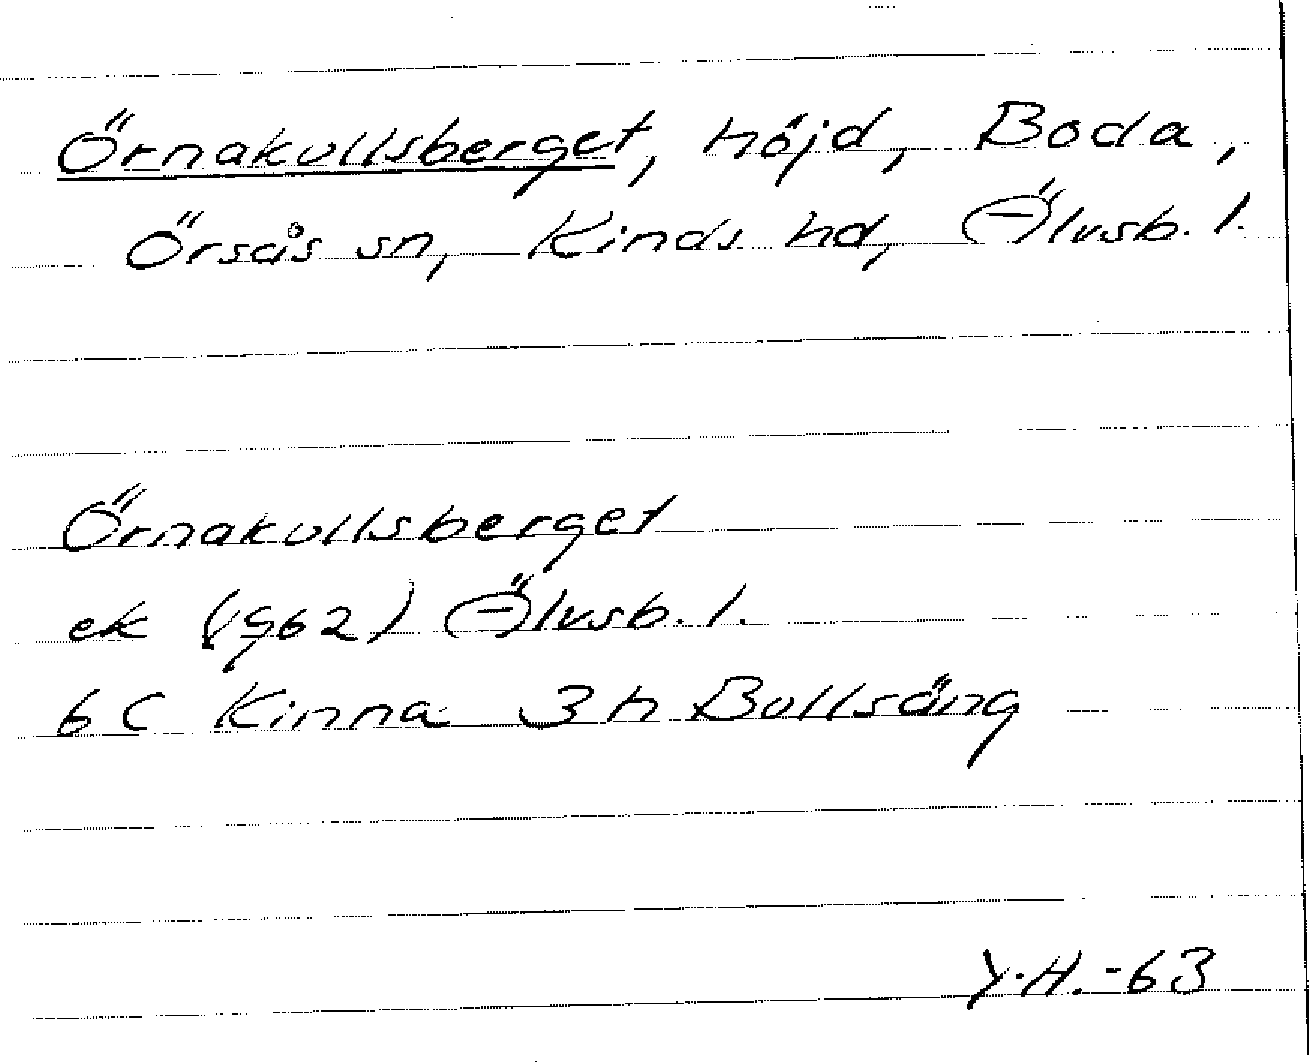 Örnakullsberget, höjd, Boda,
Örsås sn, Kinds hd, Älvsb. l.
Örnakullsberget
ek (1962) Älvsb. l.
6C Kinna 3h Bullsäng
Y.H.-63